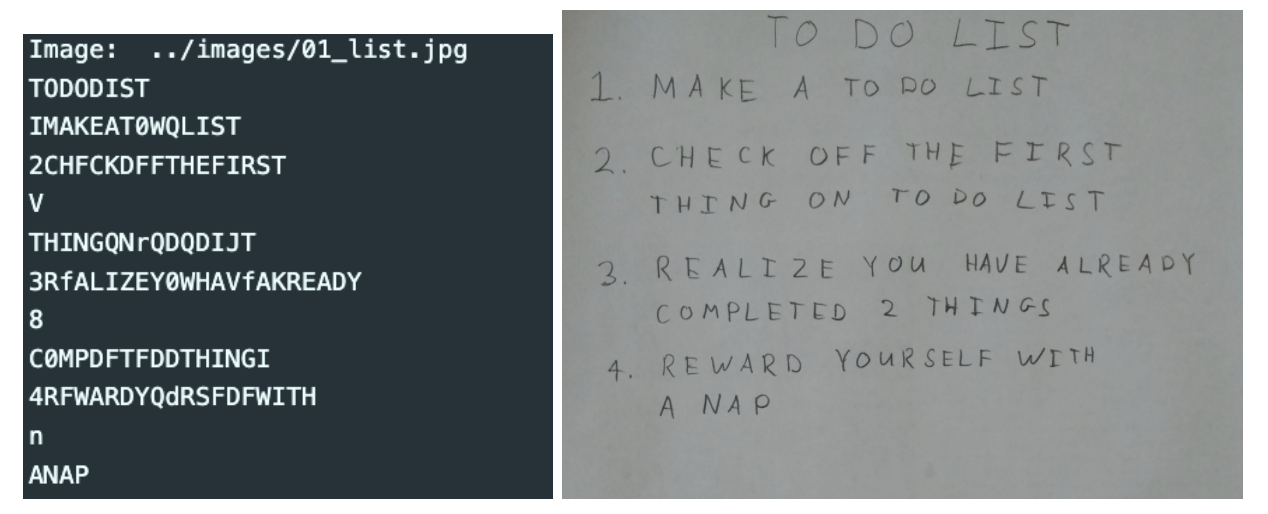 Image:  ../images/01_list.jpg
TODODIST
IMAKEAT0WQLIST
2CHFCKDFFTHEFIRST
V
THINGQNrQDQDIJT
3RfALIZEY0WHAVfAKREADY
8
C0MPDFTFDDTHINGI
4RFWARDYQdRSFDFWITH
n
ANAP
TO DO LIST
1. MAKE A TO DO LIST
2. CHECK OFF THE FIRST
THING ON TO DO LIST
3. REALIZE YOU HAVE ALREADY
COMPLETED 2 THINGS
4. REWARD YOURSELF WITH
A NAP